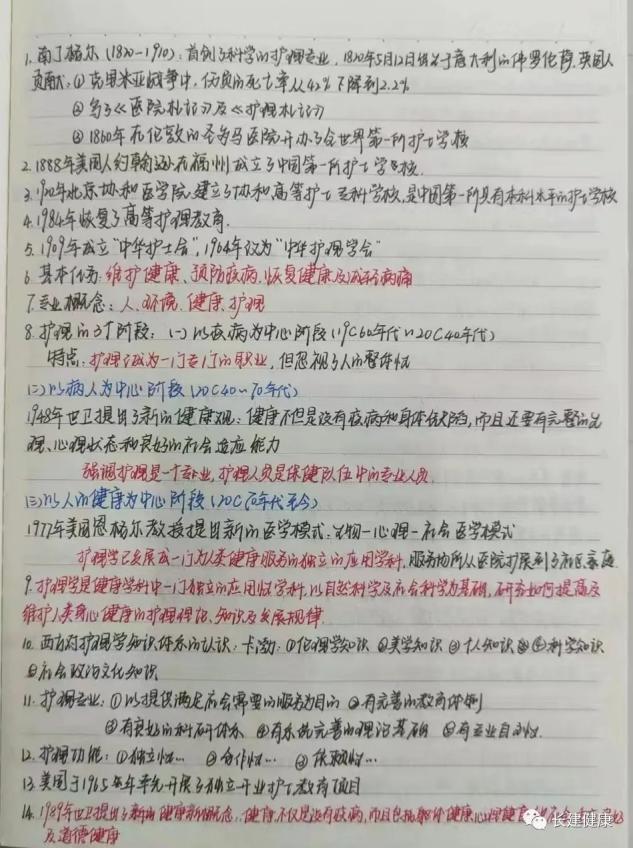 1. 南丁格尔(1820-1910):首创了科学的护理专业,1820年5月12日诞生于意大利的佛罗伦萨,英国人
贡献:①克里米亚战争中,伤员的死亡率从42%下降到2.2%
②写了《医院札记》及《护理札记》
③1860年在伦敦的圣多马医院开办了全世界第一所护士学校
2. 1888年美国人约翰逊在福州成立了中国第一所护士学校.
3. 1920年北京协和医学院建立了协和高等护士专科学校,是中国第一所具有本科水平的护士学校
4. 1984年恢复了高等护理教育.
5. 1909年成立“中华护士会”,1964年改为“中华护理学会”
6. 基本任务:维护健康、预防疾病、恢复健康及减轻病痛
7. 专业概念:人、环境、健康、护理
8. 护理的3个阶段:(一)以疾病为中心阶段(19C60年代~20C40年代)
特点:护理成为一门专门的职业,但忽视了人的整体性
(二)以病人为中心阶段(20C40~70年代)
1948年世卫提出了新的健康观:健康不但是没有疾病和身体缺陷,而且还要有完整的生
理、心理状态和良好的社会适应能力
强调护理是一个专业,护理人员是保健队伍中的专业人员.
(三)以人的健康为中心阶段(20C70年代至今)
1977年美国恩格尔教授提出新的医学模式:生物-心理-社会医学模式
护理学已发展成一门为人类健康服务的独立的应用学科,服务场所从医院扩展到了社区、家庭.
9. 护理学是健康学科中一门独立的应用性学科,以自然科学及社会科学为基础,研究如何提高及
维护人类身心健康的护理理论、知识及发展规律.
10. 西方对护理学知识体系的认识:卡渤:①伦理学知识 ②美学知识 ③个人知识 ④科学知识
⑤社会政治文化知识
11. 护理专业:①以提供满足社会需要的服务为目的 ②有完善的教育体制
③有良好的科研体系 ④有系统完善的理论基础 ⑤有专业自主性.
12. 护理功能:①独立性… ②合作性… ③依赖性…
13. 美国于1965年率先开展了独立开业护士教育项目
14. 1989年世卫提出了新的健康新概念,健康不仅是没有疾病,而且包括躯体健康、心理健康、
及道德健康
长建健康